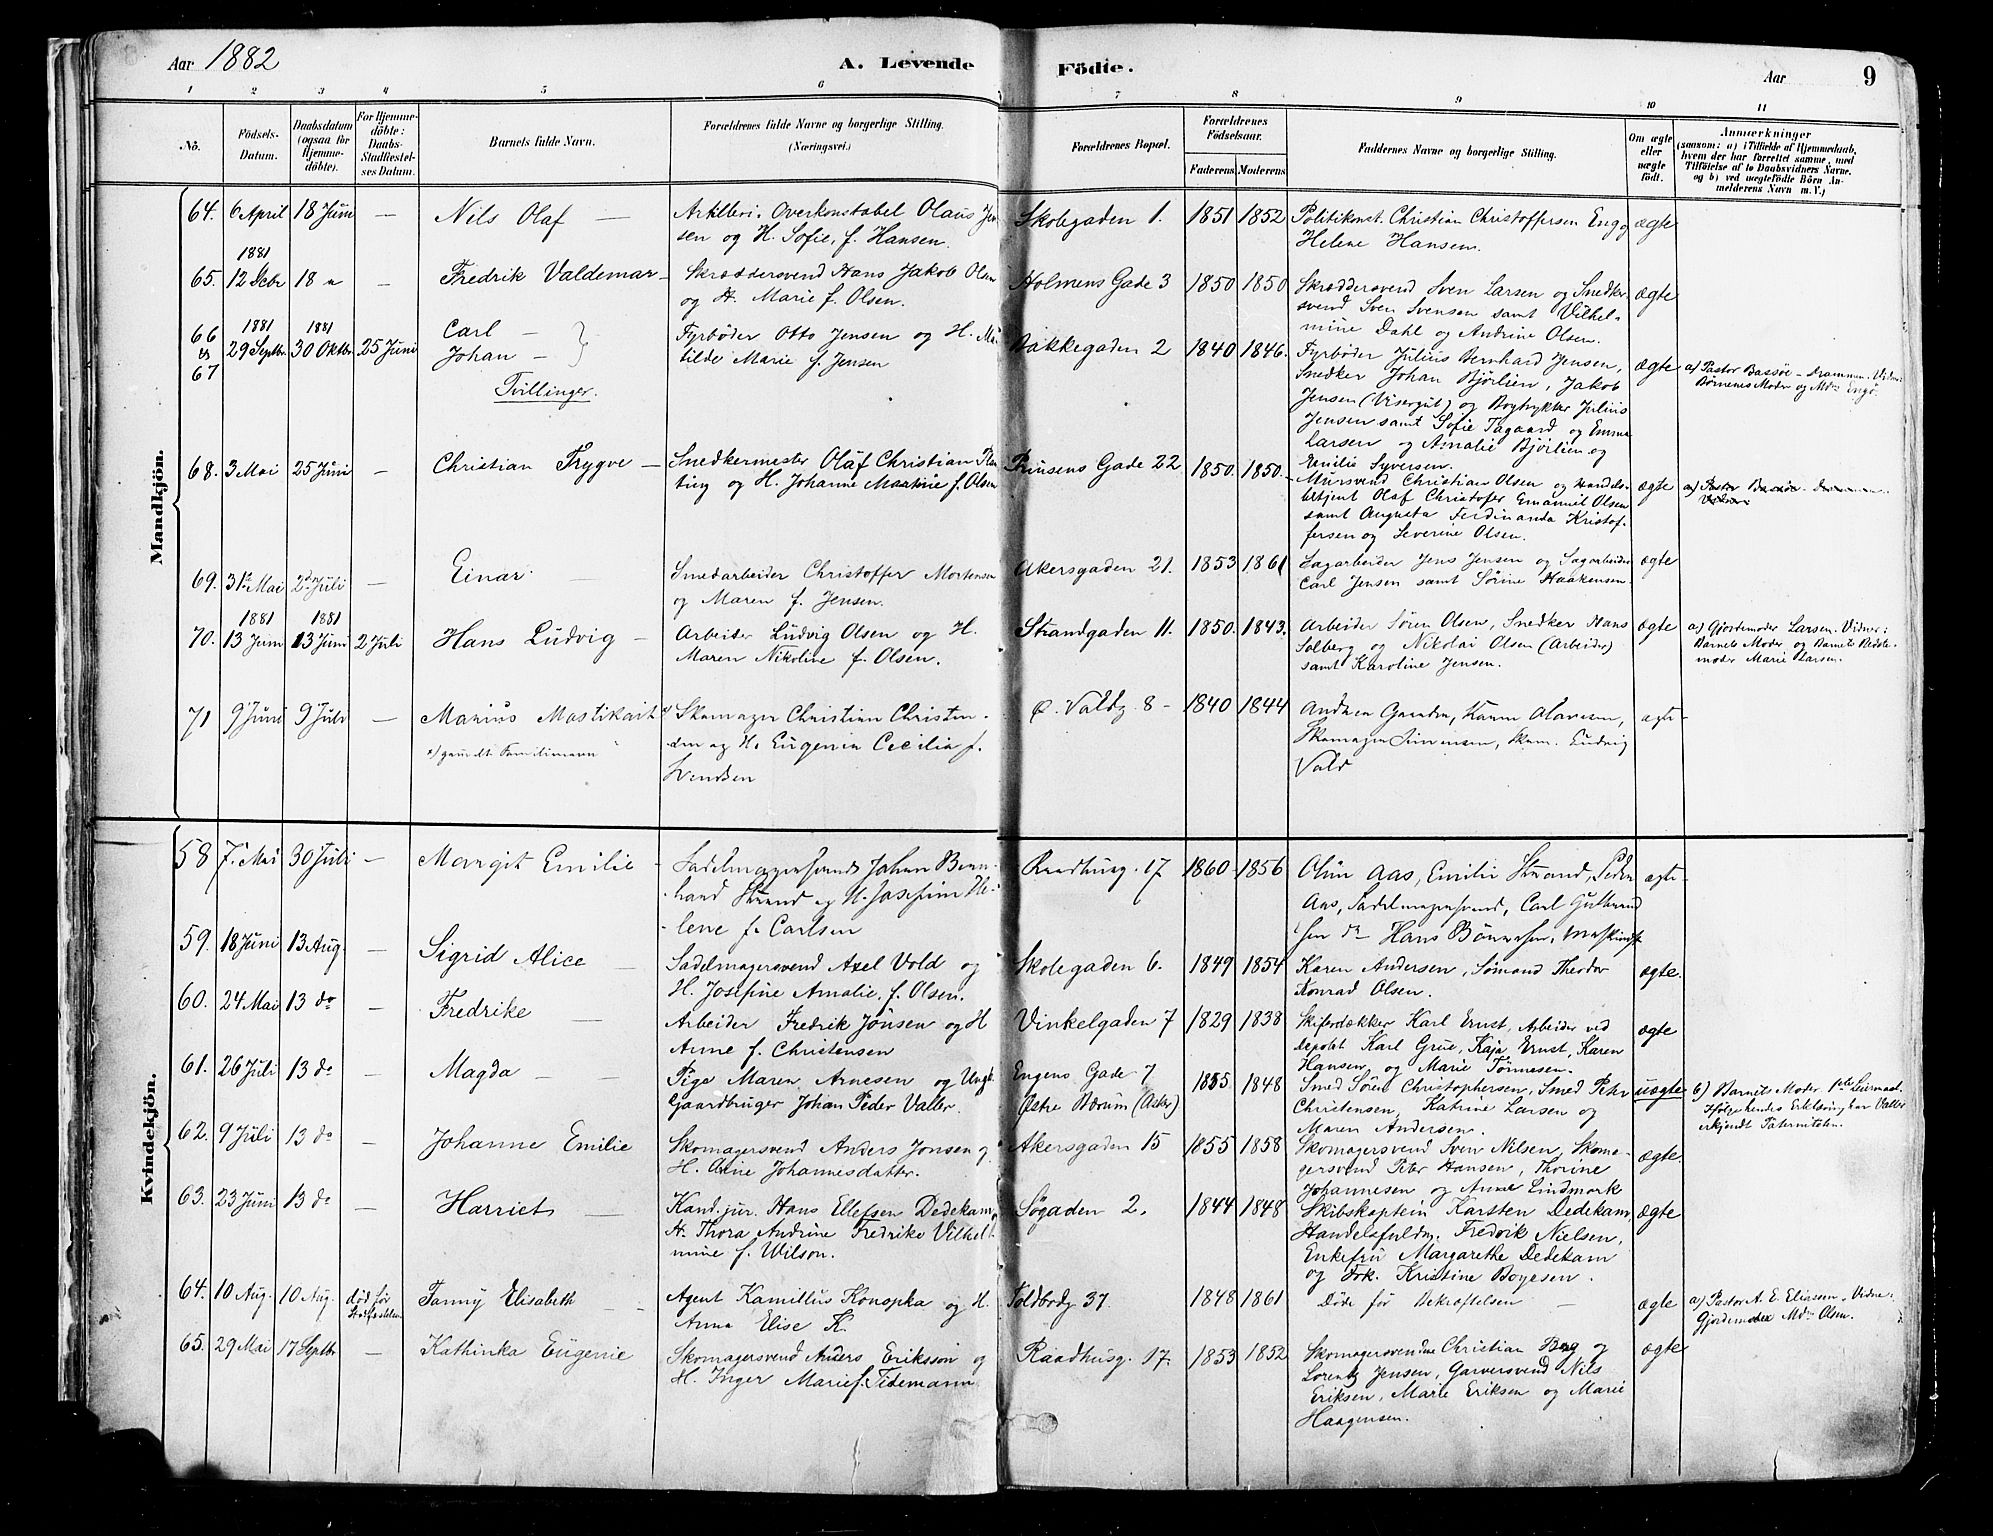 Aar 1882
A. Levende
Födte.
Aar
9
1 2 3 4 5 6 7 8 9 10 11
No.
Födsels-
Datum.
Daabsdatum
(ogsaa for
Hjemme-
döbte).
For Hjemme-
döbte:
Daabs-
Stadfæstel-
ses Datum.
Barnets fulde Navn.
Forældrenes fulde Navne og borgerlige Stilling.
(Næringsvei.)
Forældrenes Bopæl.
Forældrenes
Födselsaar.
Faderens Moderens
Faddernes Navne og borgerlige Stilling.
Om ægte
eller
uægte
födt.
Anmærkninger
(saasom: a) i Tilfælde af Hjemmedaab,
hvem der har forrettet samme, med
Tilföielse af to Daabsvidners Navne,
og b) ved uægtefödte Börn An-
melderens Navn m. V.)
Mandkjön.
64. 6 April 18 Juni — Nils Olaf —
Artilleri. Overkonstabel Olaus Jen
sen og H. Sofie, f. Hansen.
Skolegaden 1. 1851 1852
Politikonst. Christian Christoffersen Eng og
Helene Hansen.
ægte
1881
65. 12 Decbr 18 " — Fredrik Valdemar —
Skræddersvend Hans Jakob Olsen
og H. Marie f. Olsen.
Holmens Gade 3 1850 1850
Skræddersvend Sven Larsen og Snedker
svend Sven Svensen samt Vilhel-
mine Dahl og Andrine Olsen.
ægte
66
&
67
1881
29 Septbr
1881
30 Oktbr 25 Juni
Carl —
Johan —
Tvillinger.
Fyrbøder Otto Jensen og H. Ma
tilde Marie f. Jensen
Bakkegaden 2 1840 1846.
Fyrbøder Julius Bernhard Jensen,
Snedker Johan Bjørlien, Jakob
Jensen (Visergut) og Bogtrykker Julius
Jensen samt Sofie Tagaard og Emma
Larsen og Amalie Bjørlien og
Emilie Syversen.
ægte
a) Pastor Bassøe – Drammen. Vidner:
Børnenes Moder og Mdm Engø.
68. 3 Mai 25 Juni — Christian Trygve —
Snedkermester Olaf Christian Plan
ting og H. Johanne Martine f. Olsen
Prinsens Gade 22 1850. 1850.
Mursvend Christian Olsen og Handels-
betjent Olaf Christofer Emanuel Olsen
samt Augusta Ferdinanda Kristof-
fersen og Severine Olsen.
ægte
a) Pastor Bassøe Drammen.
Vidner:
69. 31te Mai 2d Juli — Einar. —
Smedarbeider Christoffer Mortensen
og Maren f. Jensen.
Akersgaden 21. 1853 1861
Sagarbeider Jens Jensen og Sagarbeider
Carl Jensen samt Sørine Haakensen.
ægte
70. 1881
13 Juni
1881
13 Juni 2 Juli Hans Ludvig —
Arbeider Ludvig Olsen og H.
Maren Nikoline f. Olsen.
Strandgaden 11. 1850. 1843.
Arbeider Søren Olsen, Snedker Hans
Solberg og Nikolai Olsen (Arbeider)
samt Karoline Jensen.
ægte
a) Gjordemoder Larsen. Vidner:
Barnets Moder og Barnets Bedste-
moder Marie Larsen.
71 9 Juni 9 Juli — Marius Mastikait x)
x) gjændt Familienavn
Skomager Christian Christen-
den og H. Eugenia Cecilia f.
Svendsen
Ø. Valdg. 8 – 1840 1844
Skomager Simensen, Skom. Ludvig
Vold
ægte
Kvindekjön.
58 7. Mai 30 Juli — Margit Emilie —
Sadelmagersvend Johan Bern-
hard Strand og H. Josefine He-
lene f. Carlsen
Raadhusg. 17 1860 1856
Olün Aas, Emilie Strand, Peder
Aas, Sadelmagersvend, Carl Gulbrand
sen do Hans Bönnesen, Maskinist
ægte
59. 18 Juni 13 Aug. — Sigrid Alice —
Sadelmagersvend Axel Vold og
H. Josefine Amalie, f. Olsen.
Skolegaden 6. 1849 1854
Karen Andersen, Sømand Theodor
Konrad Olsen.
ægte.
60. 24 Mai 13 do — Fredrike —
Arbeider Fredrik Jonsen og H
Anne f. Christensen
Vinkelgaden 7 1829 1838
Skiferdækker Karl Ernst, Arbeider ved
Depotet Karl Grue, Kaja Ernst, Karen
Hansen og Marie Tønnesen.
ægte
61. 26 Juli 13 do — Magda —
Pige Maren Arnesen og Ungk.
Gaardbruger Johan Peder Valler.
Engens Gade 7
Østre Bærum (Asker)
1855 1848
Smed Søren Christophersen, Smed Peter
Christensen, Katrine Larsen og
Maren Andersen.
uægte
b) Barnets Moder.
Ifølge hendes Erklæring har Valler
erkjendt Paterniteten.
62. 9 Juli 13 do — Johanne Emilie
Skomagersvend Anders Jonsen og
H. Anne Johannesdatter.
Akersgaden 15 1855 1858
Skomagersvend Sven Nilsen, Skoma-
gersvend Peter Hansen, Thorine
Johannesen og Anne Lindmork
ægte.
63. 23 Juni 13 do — Harriet —
Kand. jur. Hans Ellefsen Dedekam,
H. Thora Andrine Fredrike Vilhel
mine f. Wilson.
Søgaden 2. 1844 1848
Skibskaptein Karsten Dedekam,
Handelsfuldm. Fredrik Nielsen,
Enkefru Margarethe Dedekam
og Frk. Kristine Boyesen.
ægte
64. 10 Aug. 10 Aug. død før
Stadfæstelsen Fanny Elisabeth —
Agent Kamillus Konopka og H.
Anna Elise K.
Toldbodg 37. 1848 1861
Døde før Bekræftelsen —
ægte
a) Pastor A. E. Eliasen. Vidne:
Gjordemoder Mdm Olsen.
65. 29 Mai 17 Septbr — Kathinka Eugenie
Skomagersvend Anders Eriksson og
H. Inger Marie f. Tidemann
Raadhusg. 17. 1853 1852
Skomagersvendene Christian Bag og
Lorentz Jensen, Garversvend Nils
Eriksen, Marie Eriksen og Marie
Haagensen.
ægte